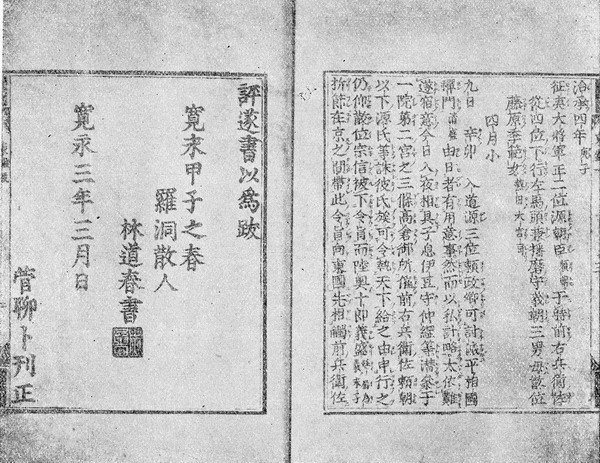 治承四年庚子
征夷大將軍正二位源朝臣于時前右兵衛佐
從四位下行左馬頭兼播磨守義朝三男母散位
藤原季範女熱田大宮司
四月小
九日 辛卯 入道源三位頼政卿可討滅平相國
禪門清盛由日者有用意事然而以私計略太依難
遂宿意今日入夜相具子息伊豆守仲綱等潜參于
一院第二宮之三條高倉御所催前右兵衛佐頼朝
以下源氏等討彼氏族可令執天下給之由申行之
仍仰散位宗信被下令旨而陸奥十郎義盛
折節在京之間帶此令旨向東國先相觸前兵衛佐
評遂書以為跋
寛永甲子之春
羅洞散人
林道春書
寛永三年三月日
菅聊卜刊正